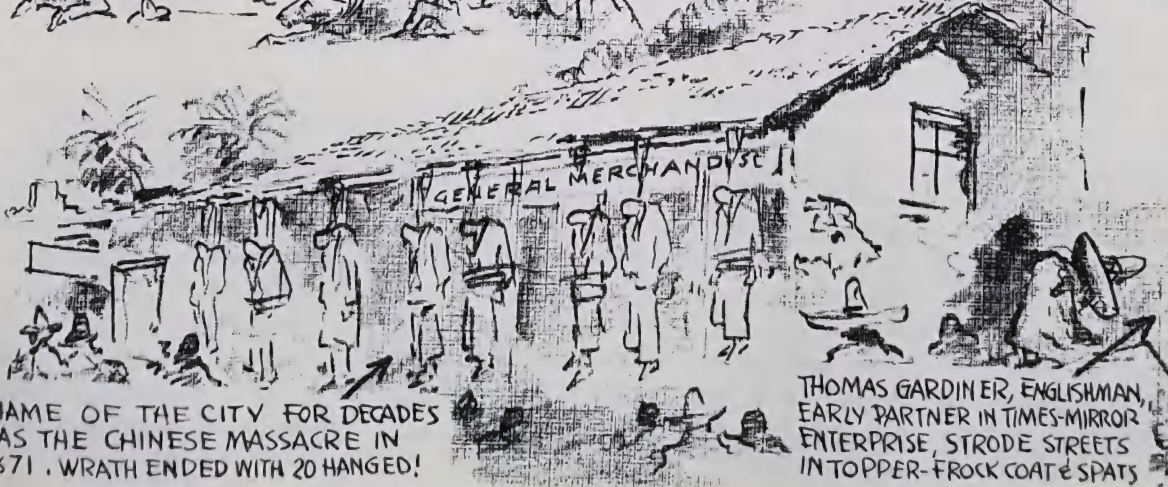 GENERAL MERCHANDISE
HAME OF THE CITY FOR DECADES
AS THE CHINESE MASSACRE IN
871. WRATH ENDED WITH 20 HANGED!
THOMAS GARDINER, ENGLISHMAN,
EARLY PARTNER IN TIMES-MIRROR
ENTERPRISE, STRODE STREETS
IN TOPPER-FROCK COAT & SPATS